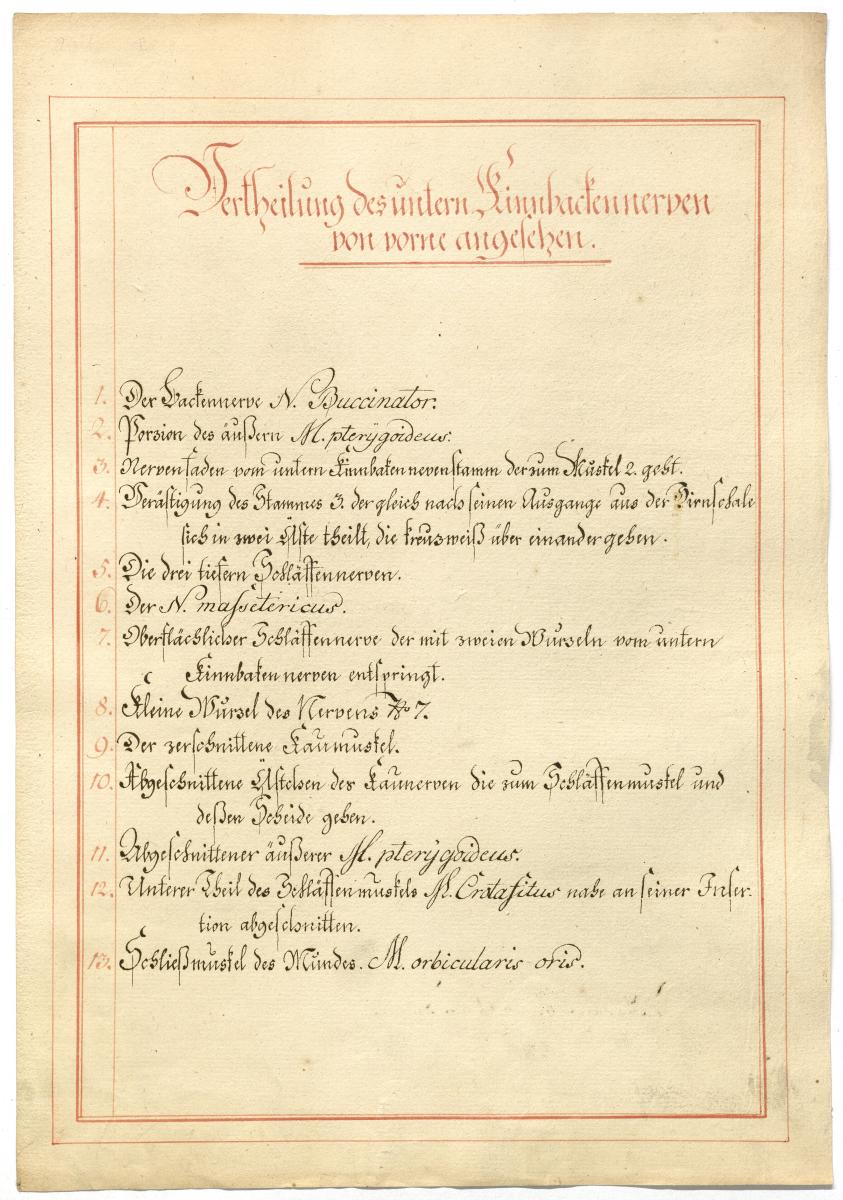 Vertheilung des untern Kinnbackennerven
von vorne angesehen.
1. Der Backennerve N. Buccinator.
2. Porzion des äußern M. pterÿgoideus.
3. Nervenfaden vom untern Kinnbaken nevenstamm der zum Muskel 2. geht.
4. Verästigung des Stammes 3. der gleich nach seinen Ausgange aus der Hirnschale
sich in zwei Äste theilt, die kreuzweiß über einander gehen.
5. Die drei tiefern Schläffennerven.
6. Der N. massetericus.
7. Oberflächlicher Schläffennerve der mit zweien Wurzeln vom untern
Kinnbaken nerven entspringt.
8. Kleine Wurzel des Nervens No 7.
9. Der zerschnittene Kaumuskel.
10. Abgeschnittene Ästchen des Kaunerven die zum Schläffenmuskel und
deßen Scheide gehen.
11. Abgeschnittener äußerer M. pterÿgoideus.
12. Unterer Theil des Schläffenmuskels M. Crotafitus nahe an seiner Inser-
tion abgeschnitten.
13. Schließmuskel des Mundes. M. orbicularis oris.